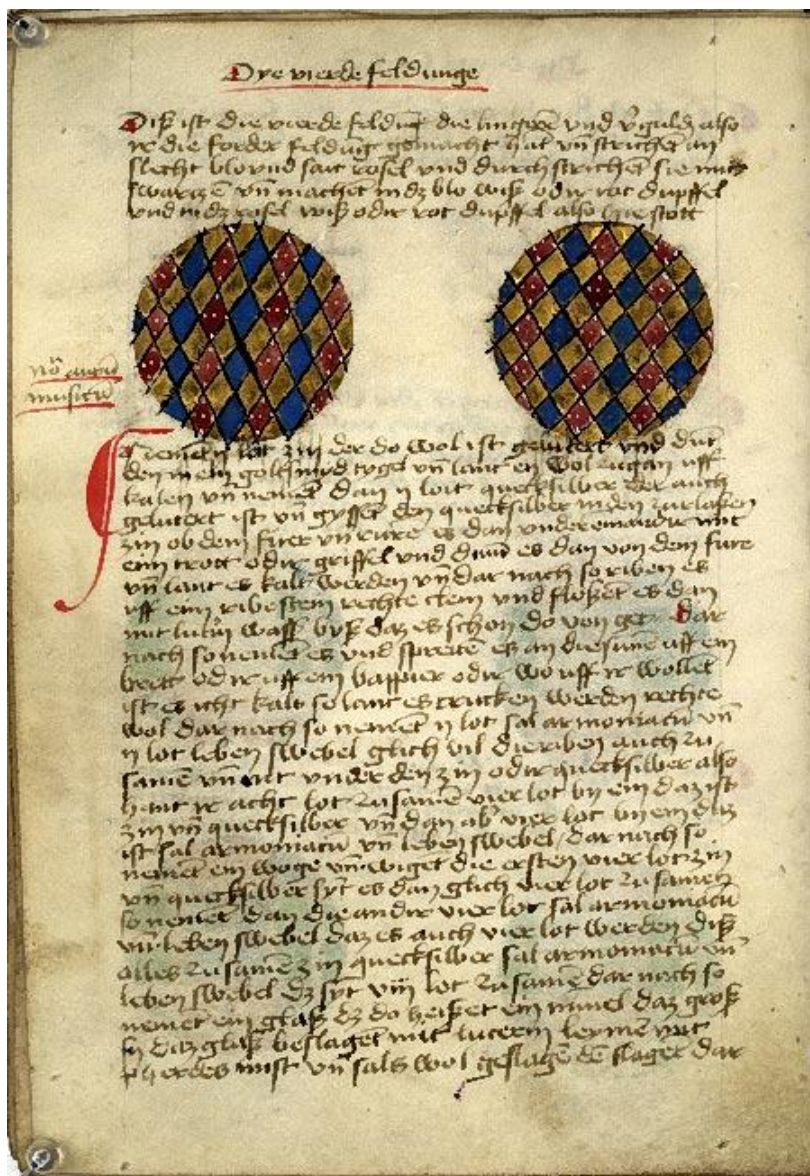 Dye vierde feldunge
Diß ist die vierde feldūg die linyrē̄ vnd v̄guldē also
ir die forder feldūg gemacht hat vn̄ strichēt an
slecht blo vnd satt rosel vnd durch strichēt sie mitt
swarczē vn̄ machet in dz blo wiß odir rot dupffel
vnd in dz rosel wiß odir rot dupffel also hie stott
No aurū
musicū
Nemēt ij lot zin der do wol ist gelutert vnd dūt
den in ein goltsmyd tygel vn̄ lant en wol zugan uff
kalen vn̄ nemēt dan ij loit quecksilber der auch
gelutert ist vn̄ gyssēt den quecksilber in den zurlaßen
zin ob dem fuer vn̄ rure es dan vndereinandir mit
eim trott odir griffel vnd dūnt es dan von dem fure
vn̄ lant es kalt werden vn̄ dar nach so riben es
uff eim ribestein rechte clein vnd floßent es dan
mit lutrm wass byß daz es schon do von get Dar
nach so nemēt es vnd spreitē es an die sūnē uff ein
brett odir uff ein bappier odir wo uff ir wollēt
ist es icht kalt so lant es trucken werden rechte
wol dar nach so nemēt ij lot sal armoniacū vn̄
ij lot leben swebel glich vil die riben auch zu
samē vn̄ nit vnder den zin odir quecksilber also
hant ir acht lot zu samē vier lot by ein daz ist
zin vn̄ quecksilber vn̄ dan ab vier lot by ein daz
ist sal armoniacū vn̄ leben swebel / dar nach so
nemet ein woge vn̄ wiget die ersten vier lot zin
vn̄ quecksilber syt es dan glich vier lot zu samen
so nemēt dan die andir vier lot sal armoniacū
vn̄ leben swebel daz es auch vier lot werden diß
alles zu samē zin quecksilber sal armoniacū vn̄
leben swebel dz syt viij lot zu samē dar nach so
nemet ein glaß dz do heißet ein daz groß
sy daz glaß beslagēt mit lutterm leymē vnt
pherdes mist vn̄ salß wol geslagē dē slaget dar